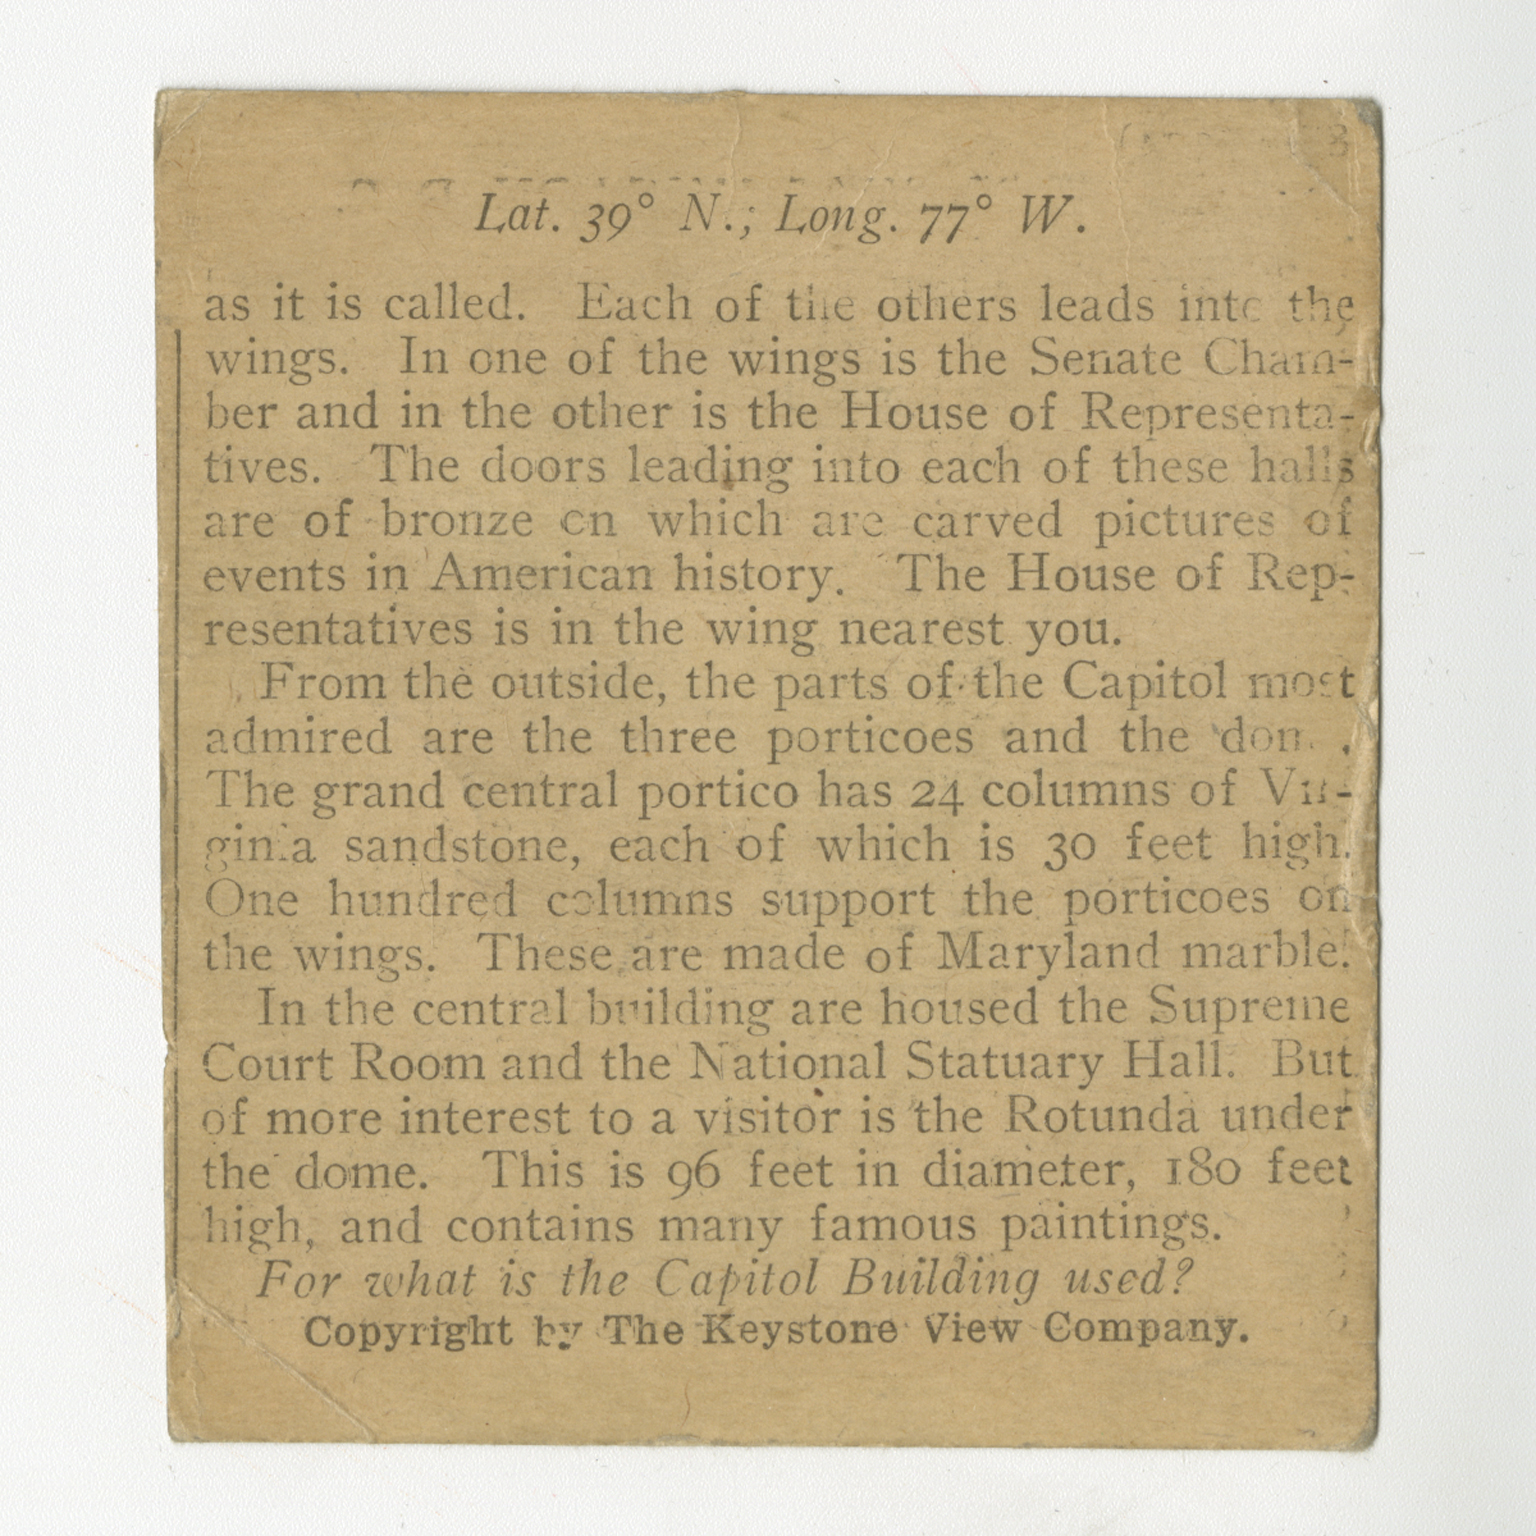 Lat. 39° N.; Long. 77° W.
as it is called. Each of the others leads into the
wings. In one of the wings is the Senate Cham-
ber and in the other is the House of Representa-
tives. The doors leading into each of these halls
are of bronze on which are carved pictures of
events in American history. The House of Rep-
resentatives is in the wing nearest you.
From the outside, the parts of the Capitol most
admired are the three porticoes and the
The grand central portico has 24 columns of Vir-
ginia sandstone, each of which is 30 feet high.
One hundred columns support the porticoes on
the wings. These are made of Maryland marble.
In the central building are housed the Supreme
Court Room and the National Statuary Hall. But
of more interest to a visitor is the Rotunda under
the dome. This is 96 feet in diameter, 180 feet
high, and contains many famous paintings.
For what is the Capitol Building used?
Copyright by The Keystone View Company.